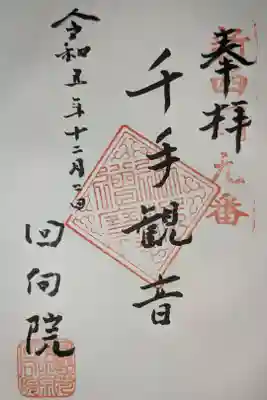 奉拝
千手観音
令和五年十二月二日
回向院